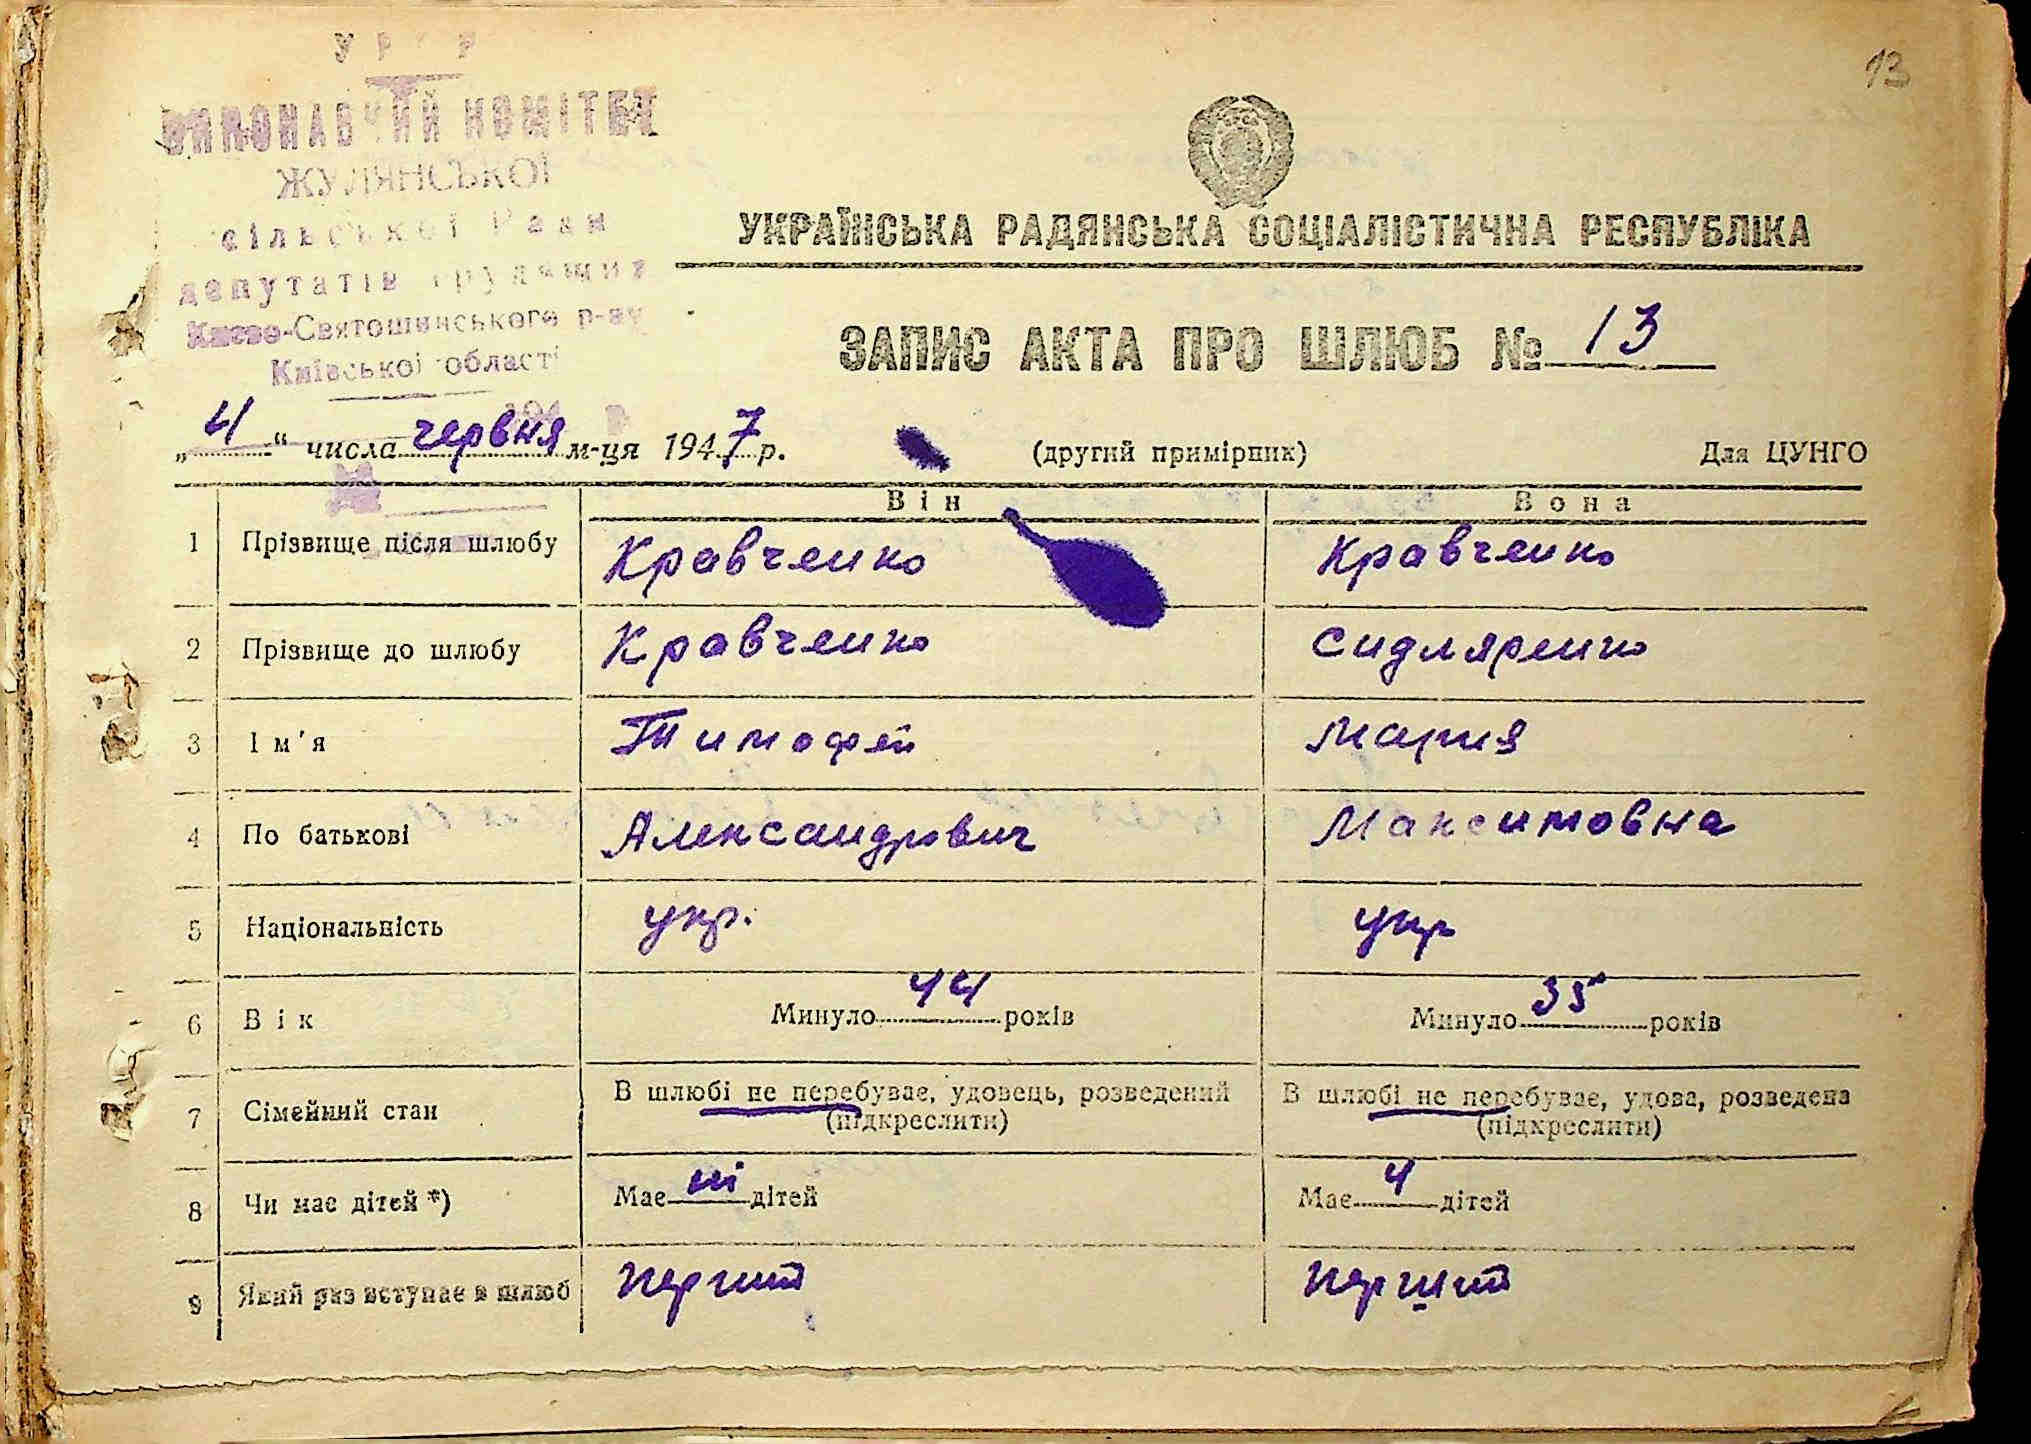 13
УРСР
ВИКОНАВЧИЙ КОМІТЕТ
ЖУЛЯНСЬКОЇ
сільської Ради
депутатів трудящих
Києво-Святошинського р-ну
Київської області
УКРАЇНСЬКА РАДЯНСЬКА СОЦІАЛІСТИЧНА РЕСПУБЛІКА
ЗАПИС АКТА ПРО ШЛЮБ № 13
„4“ числа червня м-ця 1947 р. (другий примірник) Для ЦУНГО
Він Вона
1 Прізвище після шлюбу Кравченко Кравченко
2 Прізвище до шлюбу Кравченко Сидляренко
3 Ім'я Тимофей Мария
4 По батькові Александрович Максимовна
5 Національність укр. укр
6 Вік Минуло 44 років Минуло 35 років
7 Сімейний стан В шлюбі не перебуває, удовець, розведений (підкреслити) В шлюбі не перебуває, удова, розведена (підкреслити)
8 Чи має дітей *) Має ні дітей Має 4 дітей
9 Який раз вступає в шлюб Перший Перший